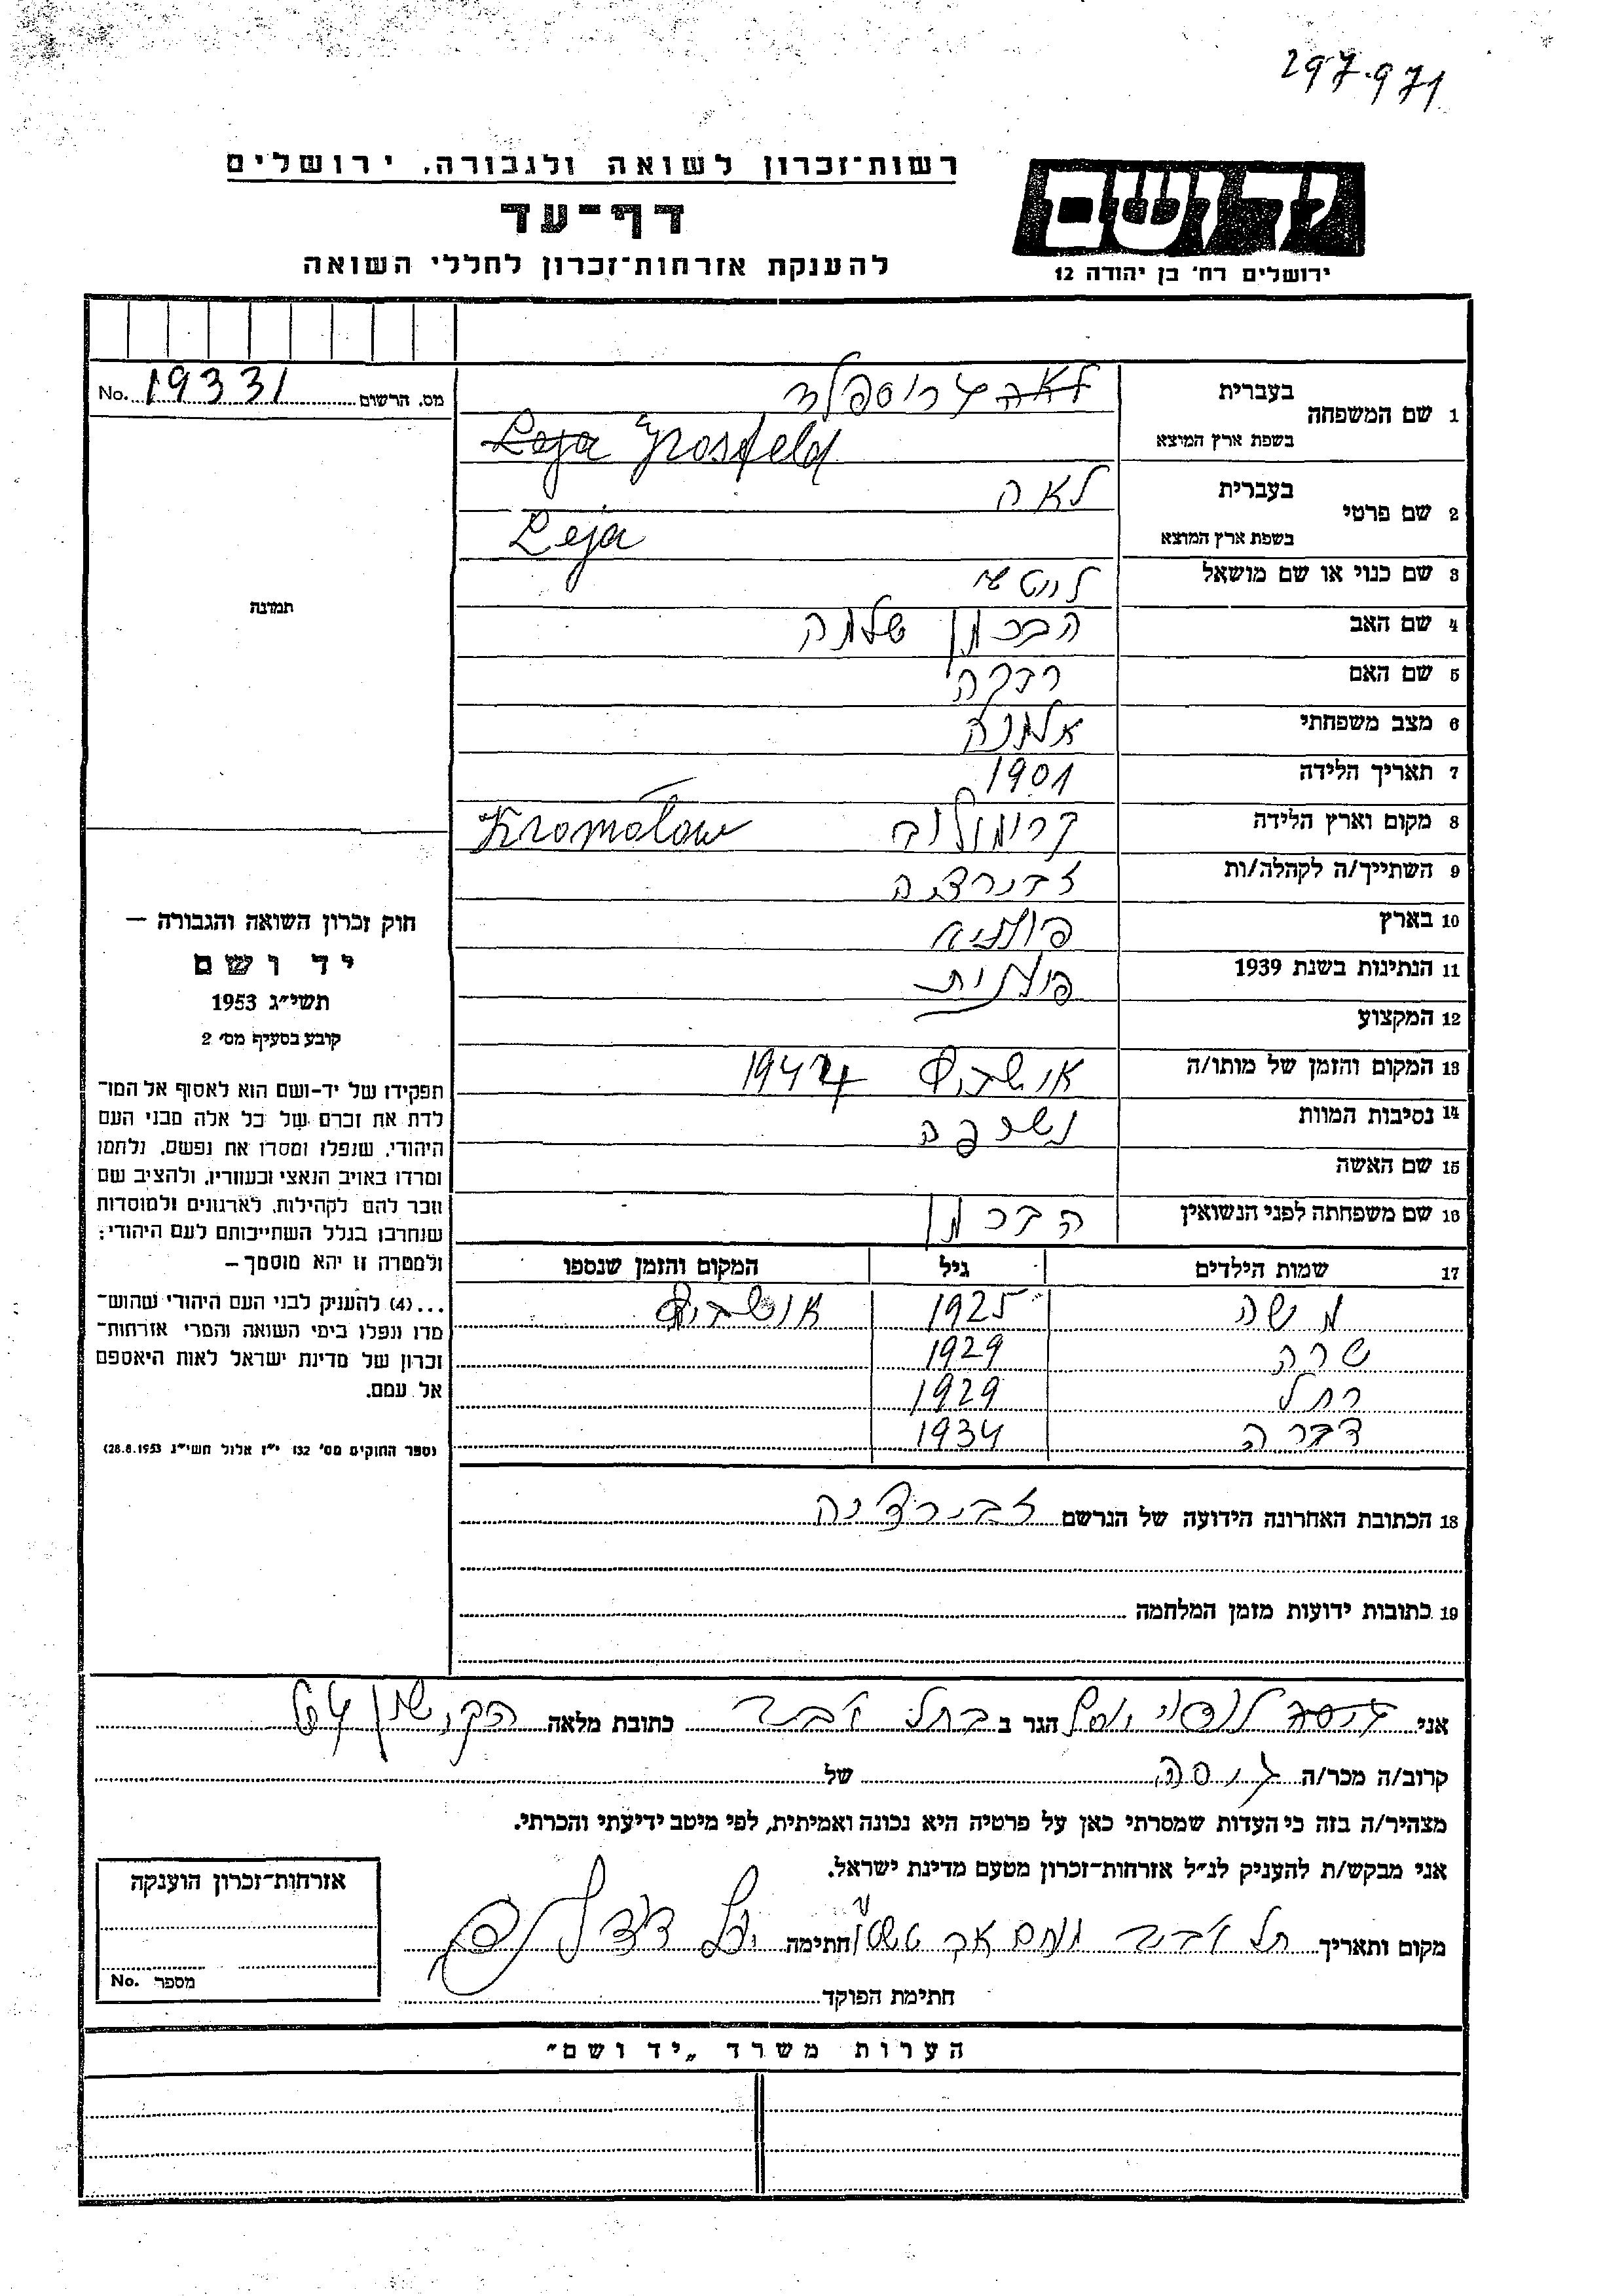 297.971
רשות־זכרון לשואה ולגבורה, ירושלים
דף־עד
להענקת אזרחות־זכרון לחללי השואה
יד ושם
ירושלים רח' בן יהודה 12
מס. הרשום 19331 No.
1 שם המשפחה
בעברית לאה גרוספלד
בשפת ארץ המוצא Leja Grosfeld
2 שם פרטי
בעברית לאה
בשפת ארץ המוצא Leja
3 שם כנוי או שם מושאל
4 שם האב שלמה
5 שם האם רבקה
6 מצב משפחתי אלמנה
7 תאריך הלידה 1901
8 מקום וארץ הלידה קרומולוב Kromołow
9 השתייך/ה לקהלה/ות זבירצה
10 בארץ פולניא
11 הנתינות בשנת 1939 פולנית
12 המקצוע
13 המקום והזמן של מותו/ה אושביץ 1944
14 נסיבות המוות נשרפה
15 שם האשה
16 שם משפחתה לפני הנשואין
17 שמות הילדים גיל המקום והזמן שנספו
משה 1925 אושביץ
שרה 1929
רחל 1929
דברה 1934
18 הכתובת האחרונה הידועה של הנרשם זבירצה
19 כתובות ידועות מזמן המלחמה
תמונה
חוק זכרון השואה והגבורה –
יד ושם
תשי״ג 1953
קובע בסעיף מס' 2
תפקידו של יד-ושם הוא לאסוף אל המו־
לדת את זכרם של כל אלה מבני העם
היהודי, שנפלו ומסרו את נפשם, נלחמו
ומרדו באויב הנאצי ובעוזריו, ולהציב שם
וזכר להם לקהילות, לארגונים ולמוסדות
שנחרבו בגלל השתייכותם לעם היהודי;
ולמטרה זו יהא מוסמך –
...(4) להעניק לבני העם היהודי שהוש־
מדו ונפלו בימי השואה והמרי אזרחות־
זכרון של מדינת ישראל לאות היאספם
אל עמם.
(ספר החוקים מס' 132 י״ז אלול תשי״ג 28.8.1953)
אני הגר ב בתל אביב כתובת מלאה
קרוב/ה מכר/ה גיסה של
מצהיר/ה בזה כי העדות שמסרתי כאן על פרטיה היא נכונה ואמיתית, לפי מיטב ידיעתי והכרתי.
אני מבקש/ת להעניק לנ״ל אזרחות-זכרון מטעם מדינת ישראל.
מקום ותאריך תל אביב חתימה
חתימת הפוקד
אזרחות־זכרון הוענקה
מספר No.
הערות משרד „יד ושם״